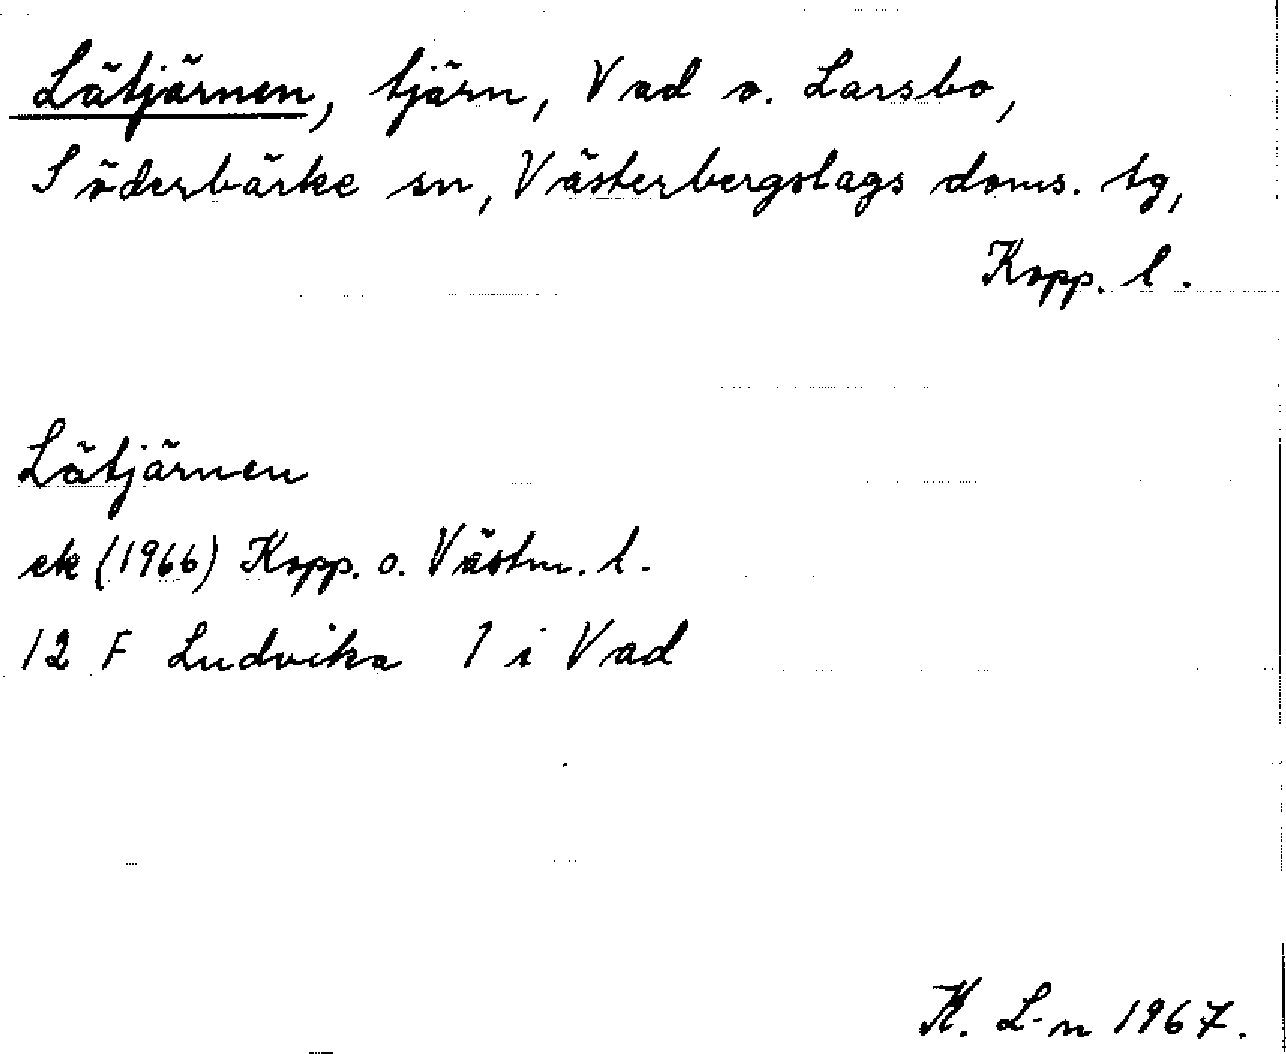 Lätjärnen, tjärn, Vad o. Larsbo,
Söderbärke sn, Västerbergslags doms. tg,
Kopp. l.
Lätjärnen
ek (1966) Kopp. o. Västm. l.
12 F Ludvika 1 i Vad
K. L-n 1967.